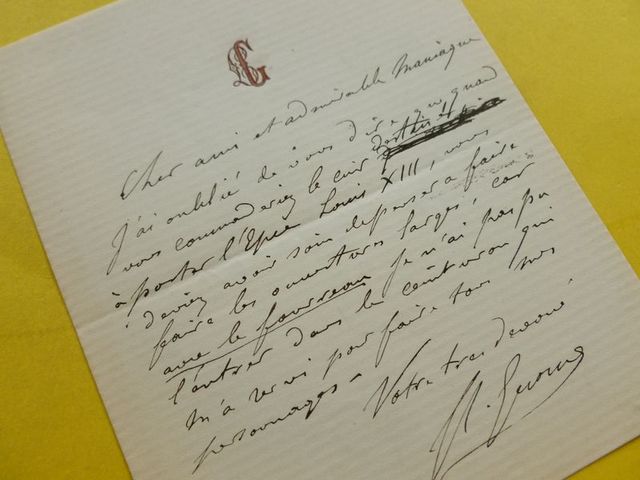 Cher ami et admirable Maniaque
J'ai oublié de vous dire que quand
vous commanderiez le cuir destiné
à porter l'Epée Louis XIII, vous
deviez avoir soin de penser à faire
faire les ouvertures larges, car
avec le fourreau je n'ai pas pu
l'entrer dans le ceinturon qui
m'a servi pour faire tous mes
personnages -
Votre très dévoué